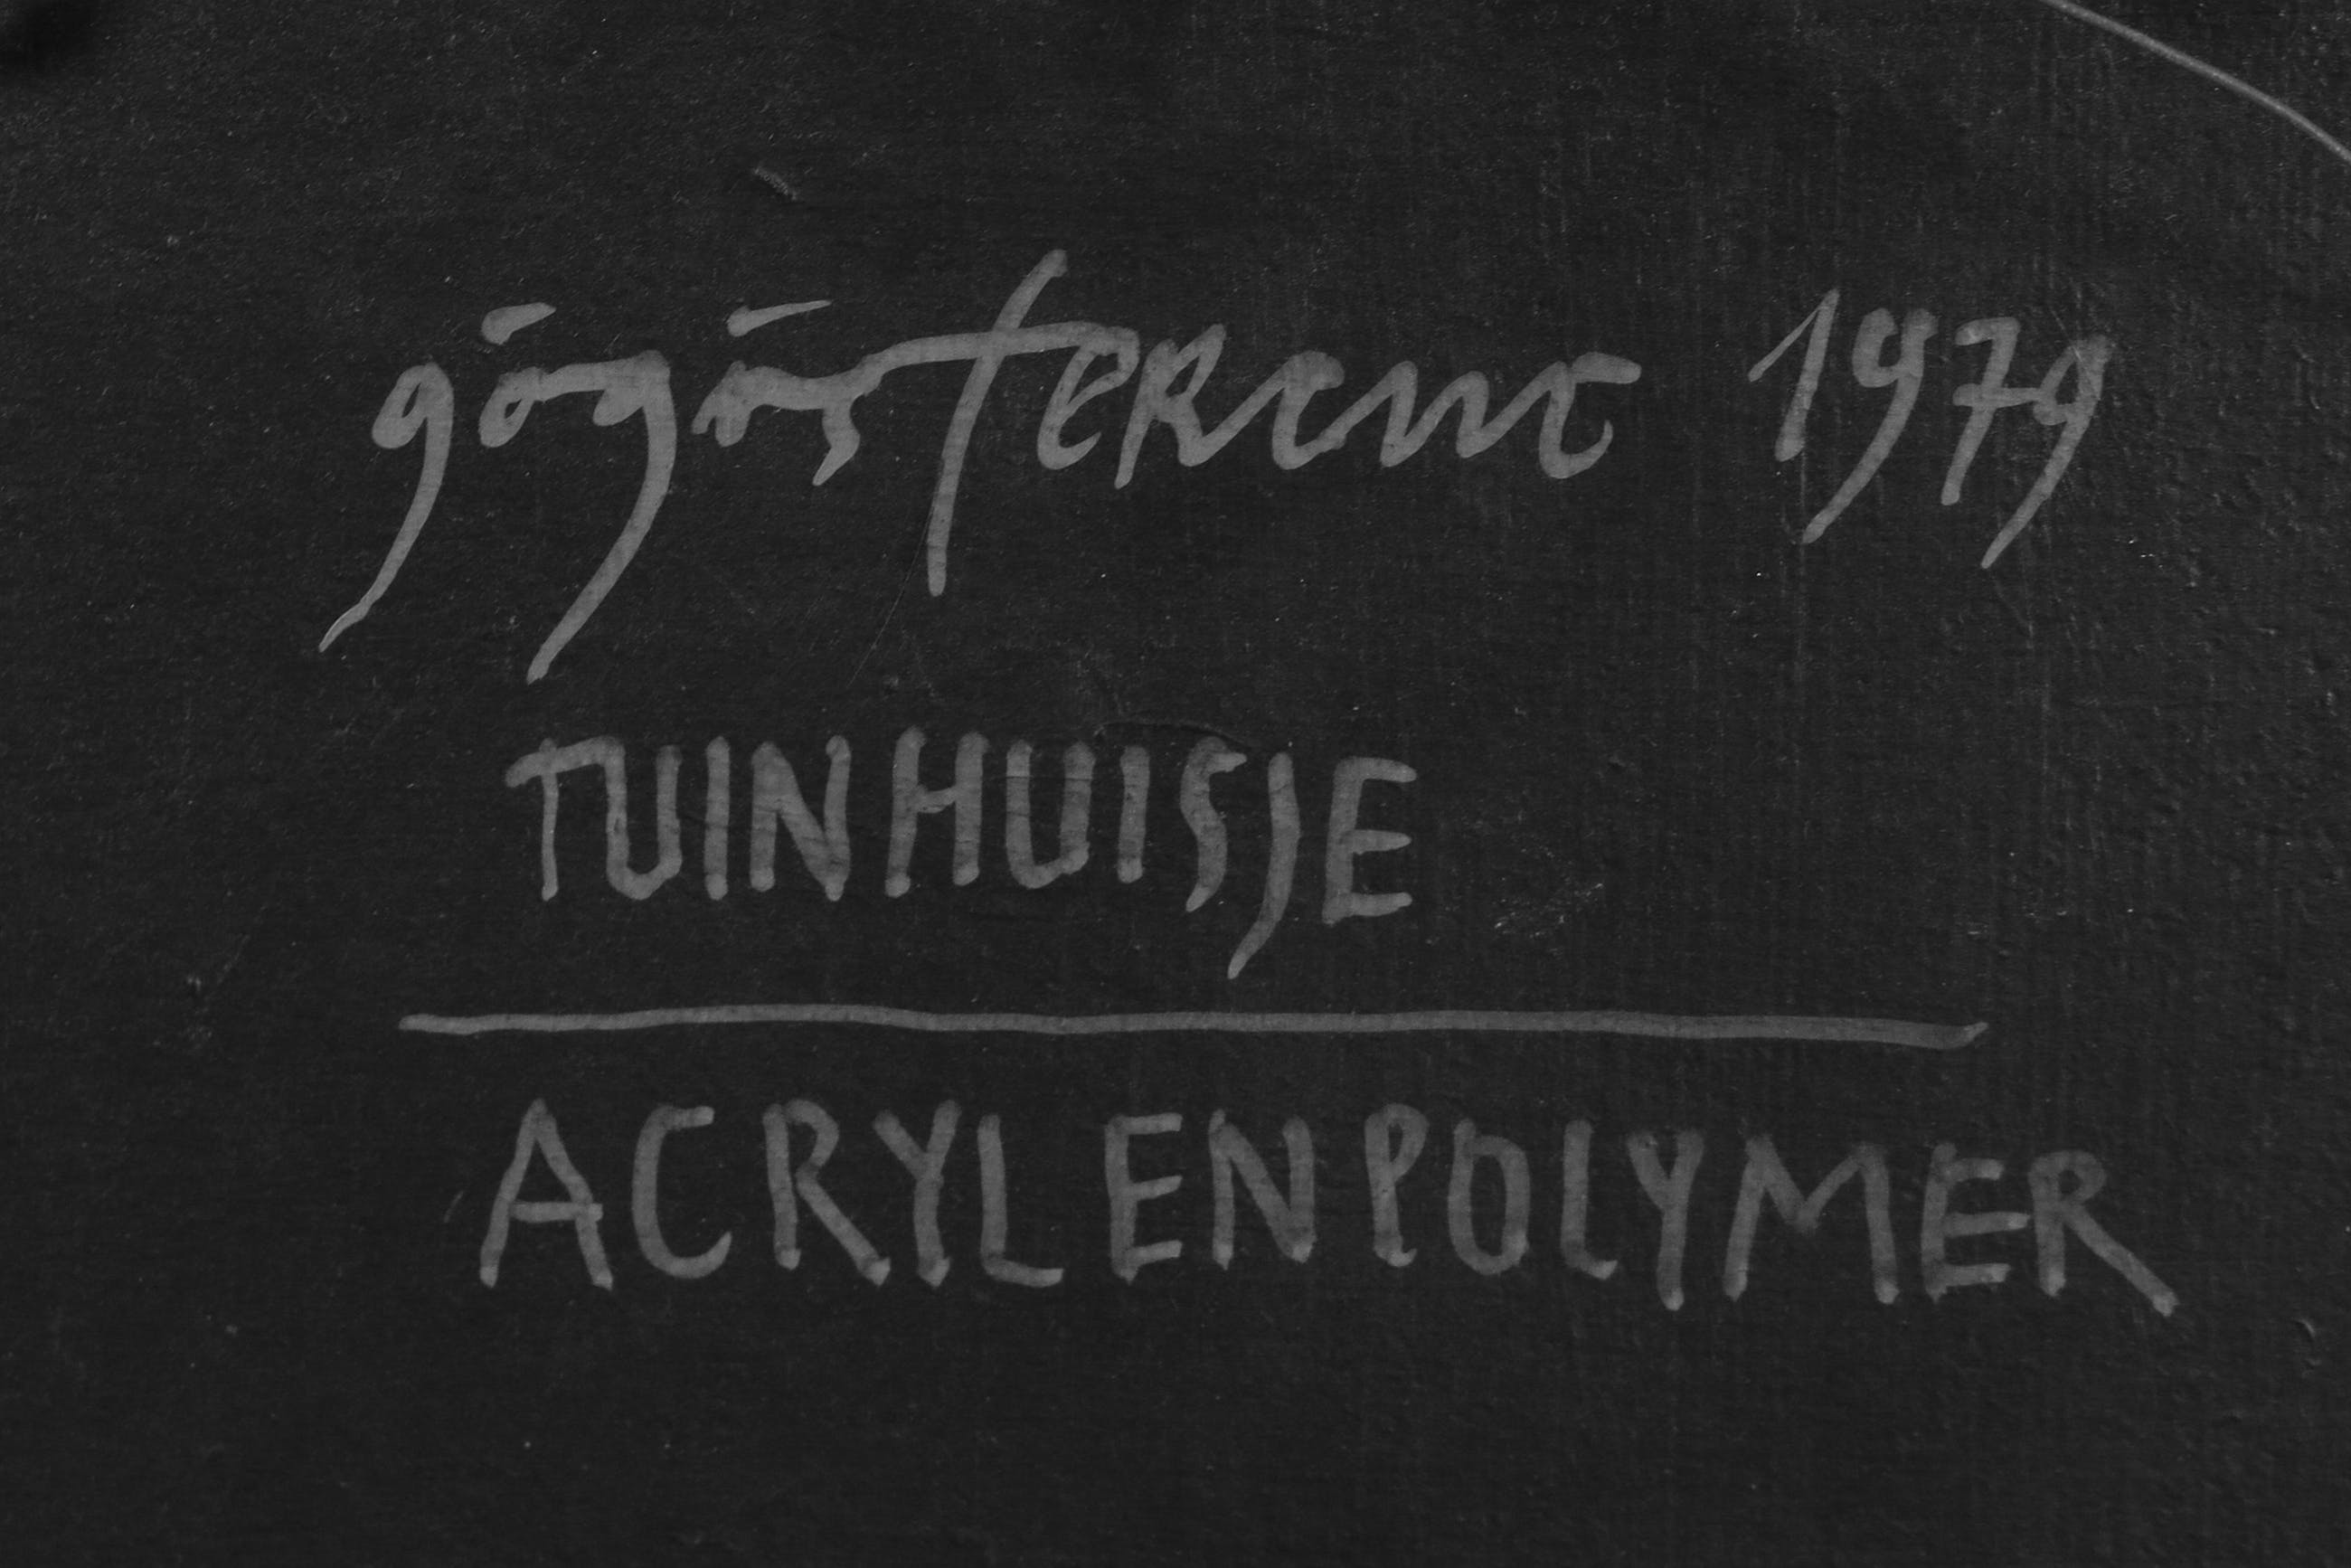 gögös ferenc 1979
TUINHUISJE
ACRYL EN POLYMER